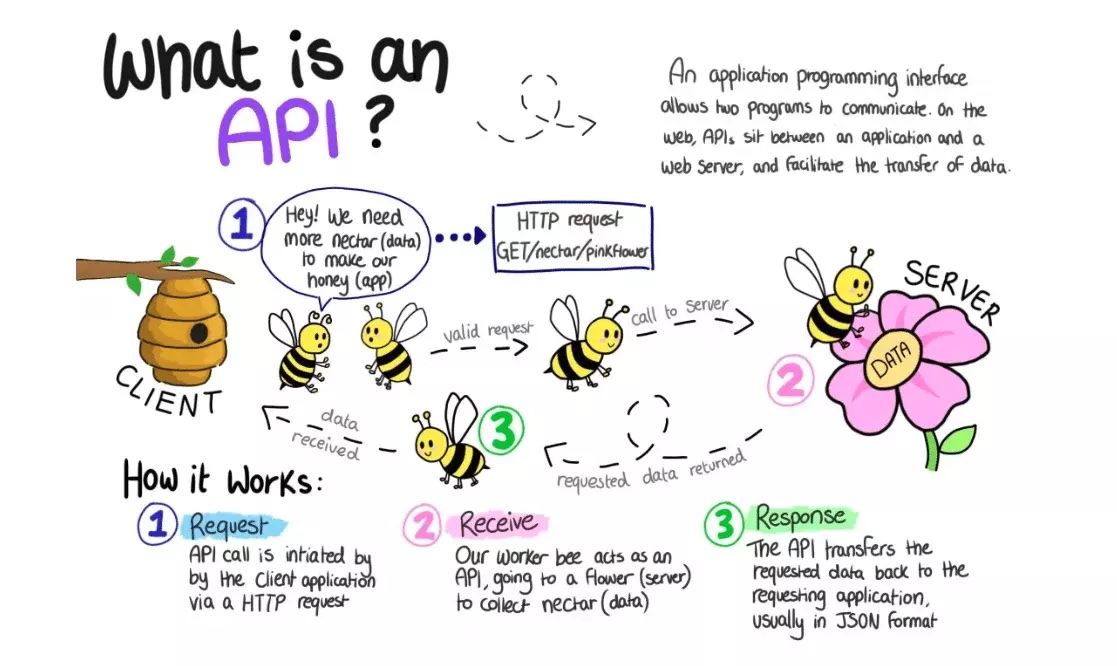 What is an
API?
An application programming interface
allows two programs to communicate. On the
web, APIs sit between an application and a
web server, and facilitate the transfer of data.
1
Hey! We need
more nectar (data)
to make our
honey (app)
HTTP request
GET/nectar/pinkflower
CLIENT
valid request
call to server
SERVER
DATA
2
data
received
3
requested data returned
How it works:
1 Request
API call is intiated by
by the client application
via a HTTP request
2 Receive
Our worker bee acts as an
API, going to a flower (server)
to collect nectar (data)
3 Response
The API transfers the
requested data back to the
requesting application,
usually in JSON format